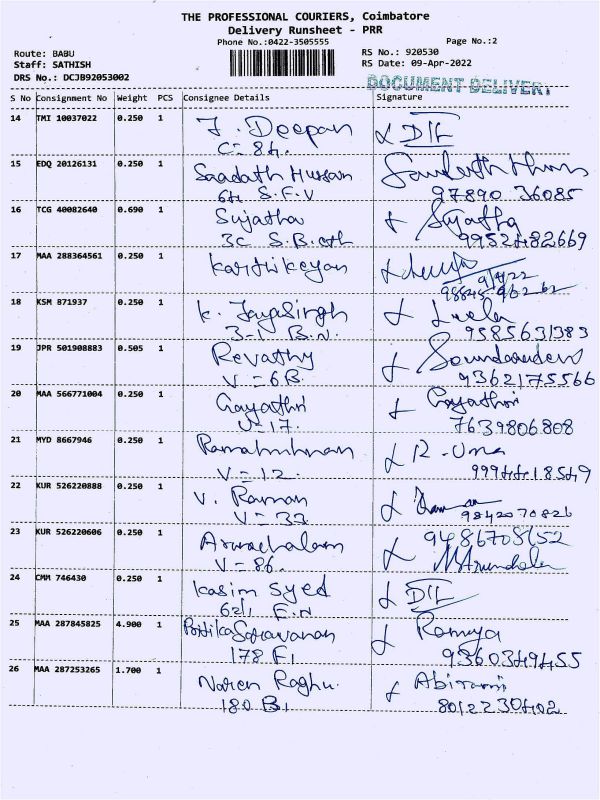 THE PROFESSIONAL COURIERS, Coimbatore
Delivery Runsheet - PRR
Phone No.:0422-3505555
Page No.:2
Route: BABU
RS No.: 920530
Staff: SATHISH
RS Date: 09-Apr-2022
DRS No.: DCJB92053002
DOCUMENT DELIVERY
S No Consignment No Weight PCS Consignee Details Signature
14 TMI 10037022 0.250 1 J. Deepan
C=84.
15 EDQ 20126131 0.250 1 Saadath Hussan
64 S.F.V 97890 36085
16 TCG 40082640 0.690 1 Sujatha Sujatha
3C S.B. 9952482669
17 MAA 288364561 0.250 1 Karthikeyan
9/4/22
18 KSM 871937 0.250 1 K. Jayasingh
3-1 B.N. 9585631383
19 JPR 501908883 0.505 1 Revathy
V=6B. 9362175566
20 MAA 566771004 0.250 1 Gayathri Gayathri
V=17. 7639806808
21 MYD 8667946 0.250 1 R. Uma
V=12. 9994418549
22 KUR 526220888 0.250 1 V. Raman
V=33 9842070826
23 KUR 526220606 0.250 1 Arunachalam 9486708652
V=86.
24 CMM 746430 0.250 1 Kasim Syed
62/1 F.N
25 MAA 287845825 4.900 1 Ramya
178 F1 9360349455
26 MAA 287253265 1.700 1 Naren Raghu. Abirami
180 B1 8012230402